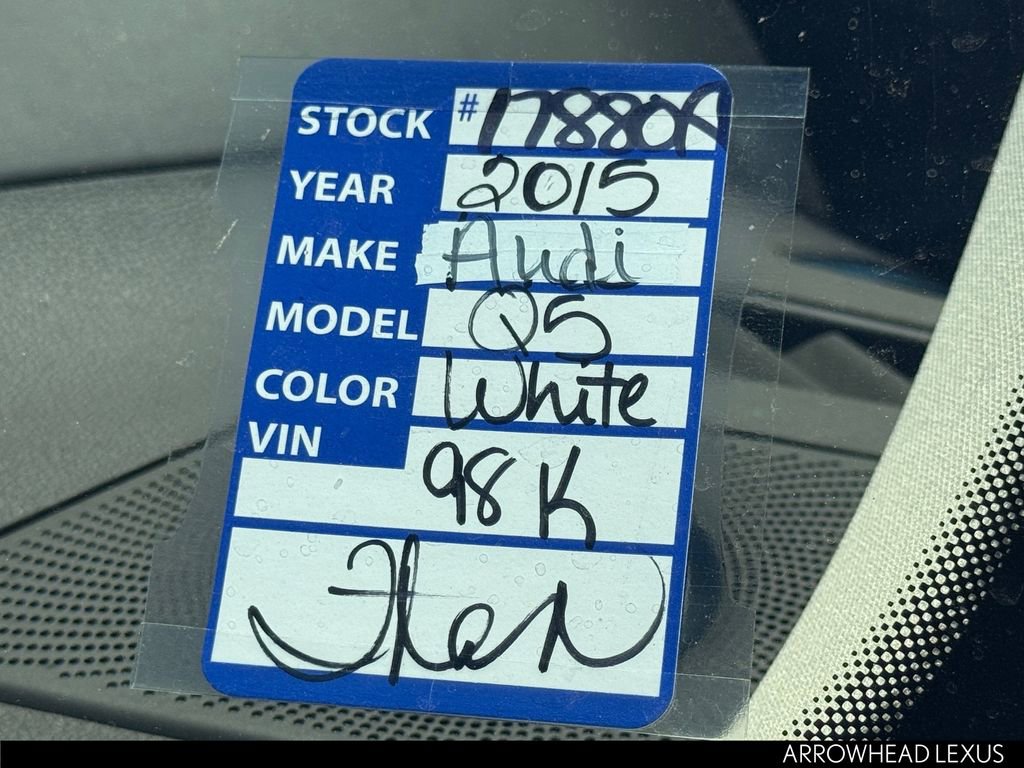 STOCK # 17880A
YEAR 2015
MAKE Audi
MODEL Q5
COLOR White
VIN
98 K
ARROWHEAD LEXUS